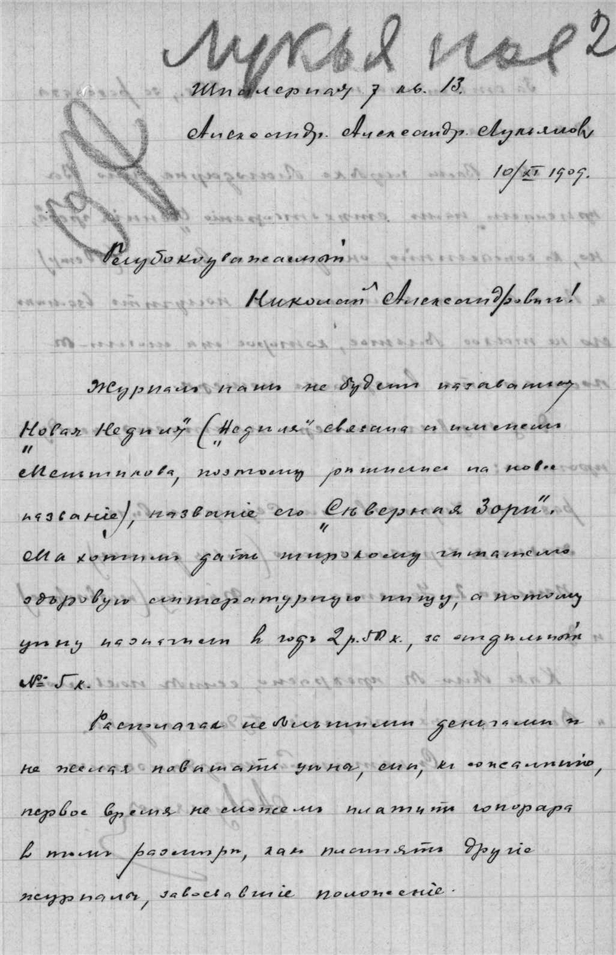 Лукьянов 2
Шпалерная 7 кв. 13.
Александр. Александр. Лукьянов
10/XI 1909.
Глубокоуважаемый
Николай Александрович!
Журналъ нашъ не будетъ называться
„Новая Недѣля" („Недѣля" связана съ именемъ
Меньшикова, поэтому рѣшились на новое
названіе), названіе его „Сѣверная Зоря".
Мы хотимъ дать широкому читателю
здоровую литературную пищу, а потому
цѣну назначили въ годъ 2 р. 50 к., за отдѣльный
№ 5 к.
Располагая небольшими деньгами и
не желая повышать цѣны, мы, къ сожалѣнію,
первое время не сможемъ платить гонорара
въ томъ размѣрѣ, какъ платятъ другіе
журналы, завоевавшіе положеніе.